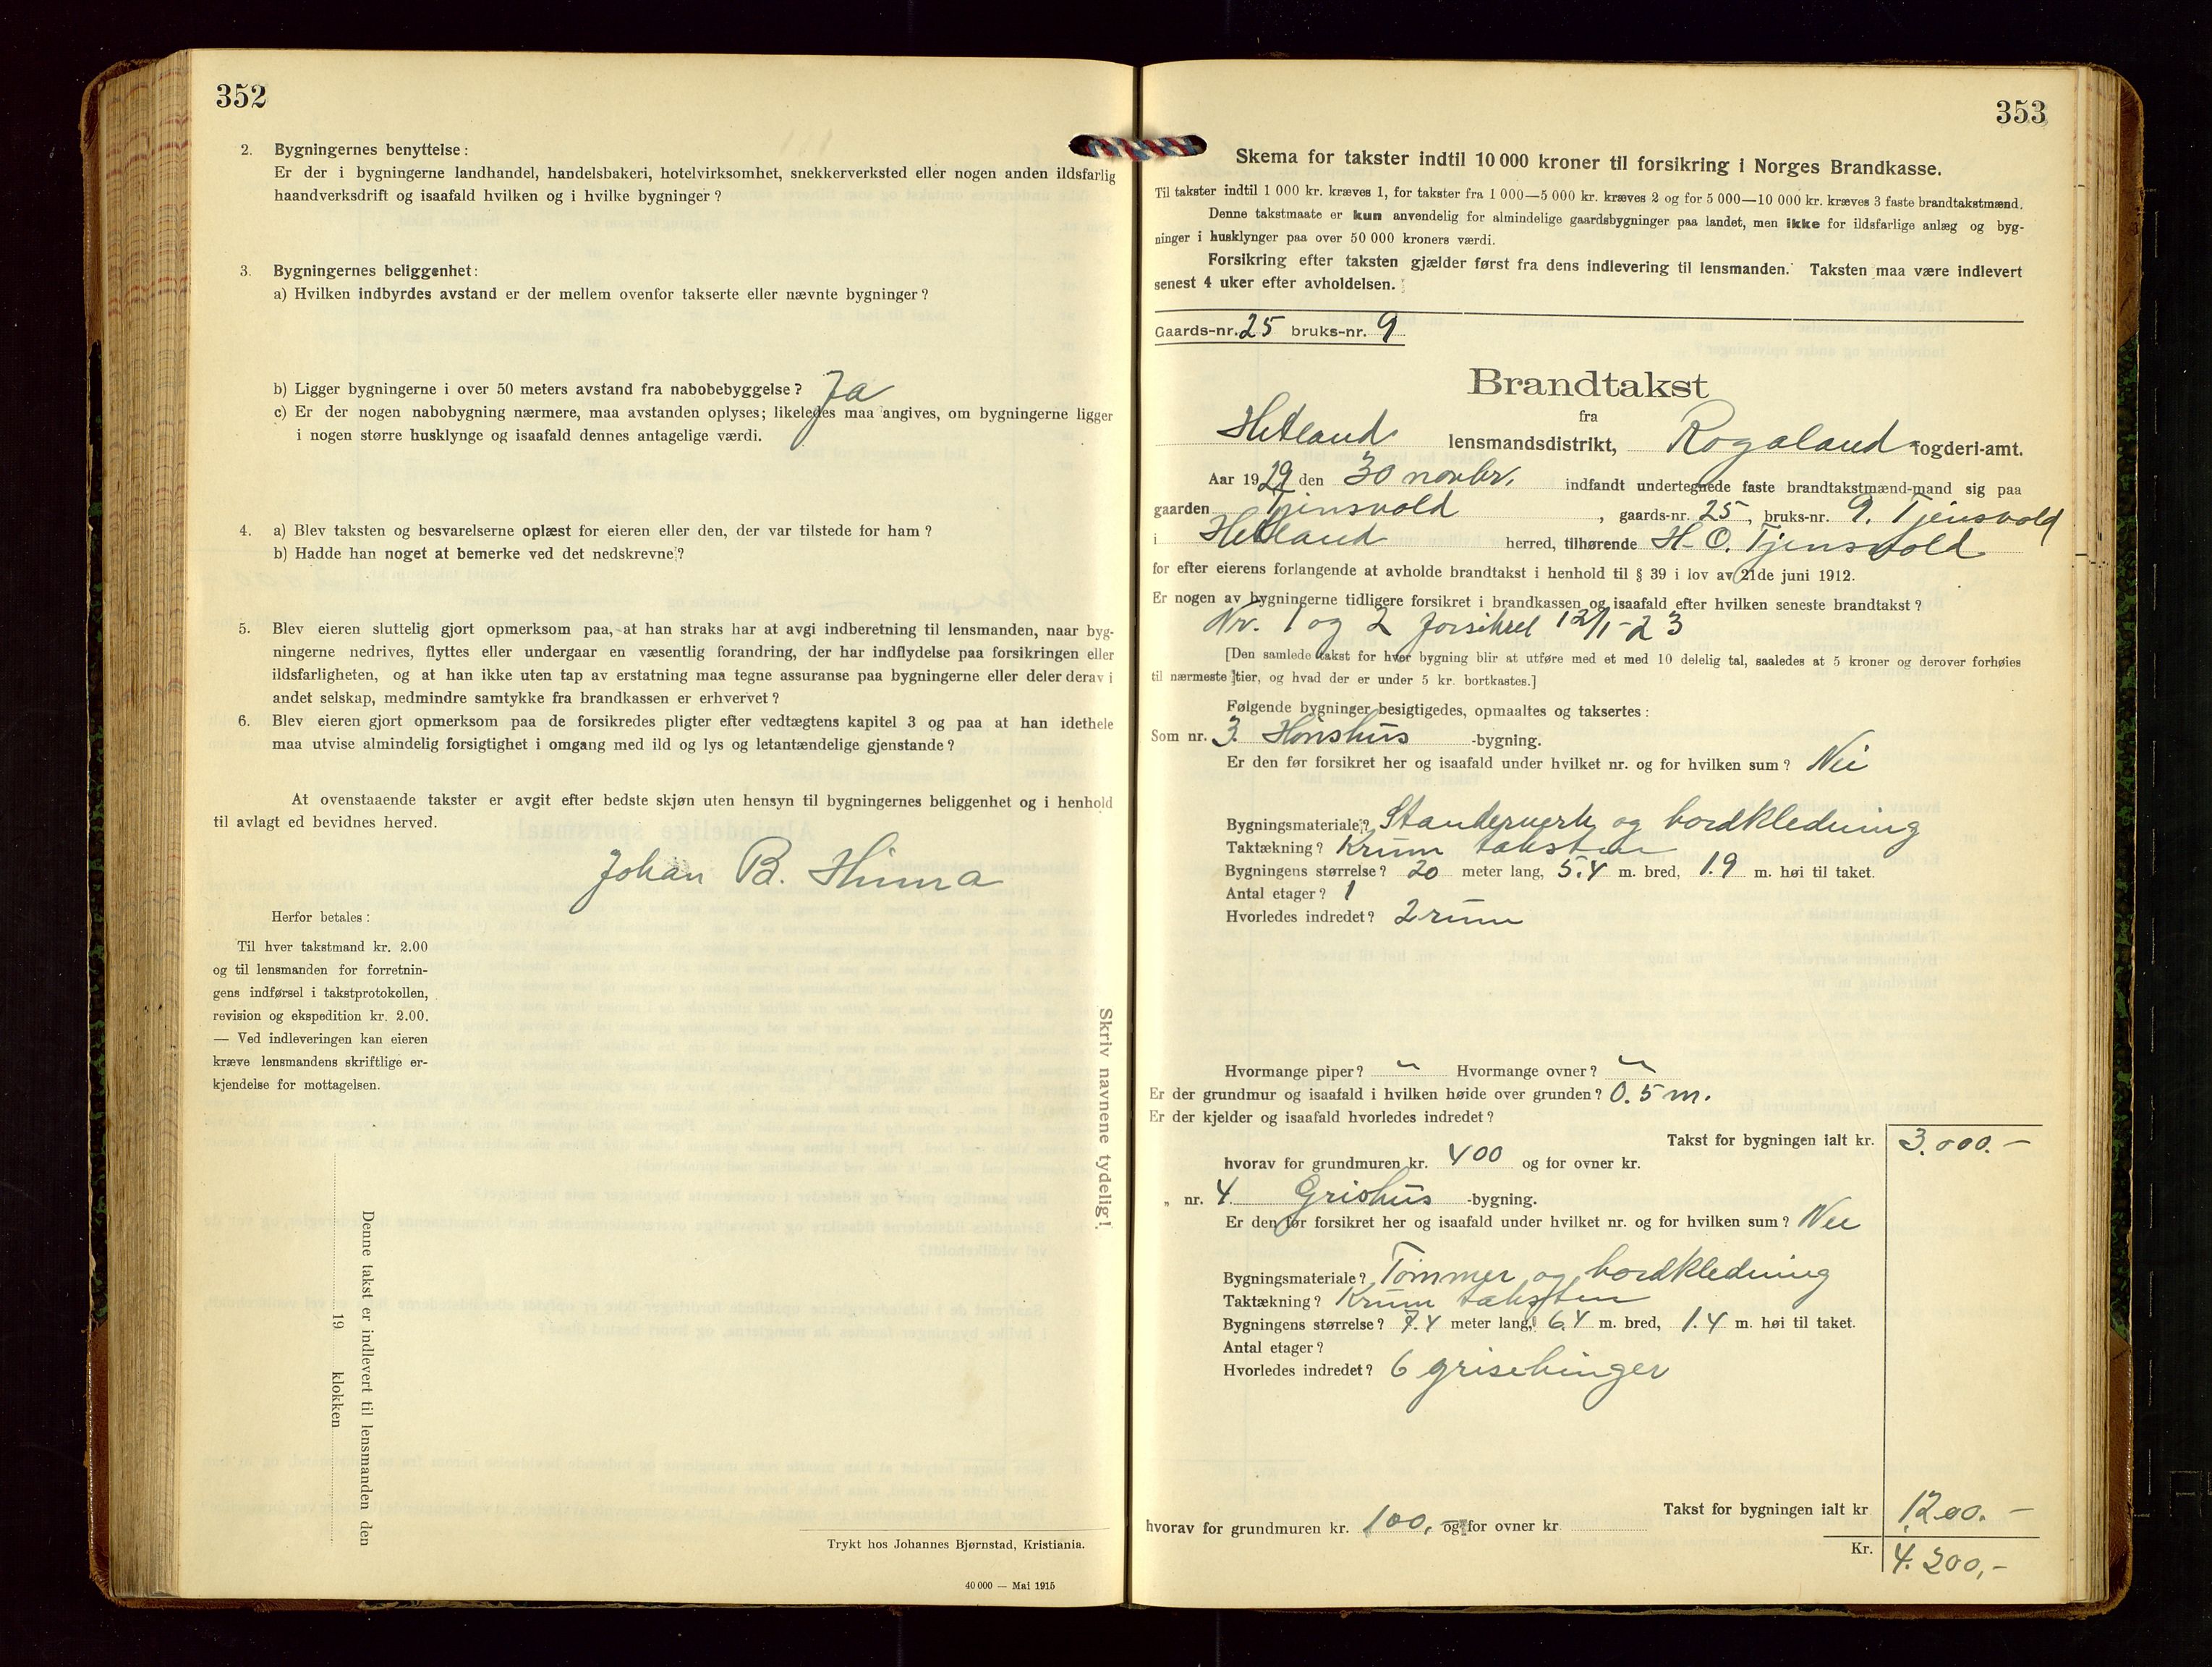 352
2. Bygningernes benyttelse:
Er der i bygningerne landhandel, handelsbakeri, hotelvirksomhet, snekkerverksted eller nogen anden ildsfarlig
haandverksdrift og isaafald hvilken og i hvilke bygninger?
3. Bygningernes beliggenhet:
a) Hvilken indbyrdes avstand er der mellem ovenfor takserte eller nævnte bygninger?
b) Ligger bygningerne i over 50 meters avstand fra nabobebyggelse? Ja
c) Er der nogen nabobygning nærmere, maa avstanden oplyses; likeledes maa angives, om bygningerne ligger
i nogen større husklynge og isaafald dennes antagelige værdi.
4. a) Blev taksten og besvarelserne oplæst for eieren eller den, der var tilstede for ham?
b) Hadde han noget at bemerke ved det nedskrevne?
5. Blev eieren sluttelig gjort opmerksom paa, at han straks har at avgi indberetning til lensmanden, naar byg-
ningerne nedrives, flyttes eller undergaar en væsentlig forandring, der har indflydelse paa forsikringen eller
ildsfarligheten, og at han ikke uten tap av erstatning maa tegne assuranse paa bygningerne eller deler derav i
andet selskap, medmindre samtykke fra brandkassen er erhvervet?
6. Blev eieren gjort opmerksom paa de forsikredes pligter efter vedtægtens kapitel 3 og paa at han idethele
maa utvise almindelig forsigtighet i omgang med ild og lys og letantændelige gjenstande?
At ovenstaaende takster er avgit efter bedste skjøn uten hensyn til bygningernes beliggenhet og i henhold
til avlagt ed bevidnes herved.
Johan B. Hinna
Herfor betales:
Til hver takstmand kr. 2.00
og til lensmanden for forretnin-
gens indførsel i takstprotokollen,
revision og ekspedition kr. 2.00.
— Ved indleveringen kan eieren
kræve lensmandens skriftlige er-
kjendelse for mottagelsen.
Denne takst er indlevert til lensmanden den
19 klokken
Skriv navnene tydelig!
Trykt hos Johannes Bjørnstad, Kristiania.
40 000 — Mai 1915
353
Skema for takster indtil 10 000 kroner til forsikring i Norges Brandkasse.
Til takster indtil 1 000 kr. kræves 1, for takster fra 1 000—5 000 kr. kræves 2 og for 5 000—10 000 kr. kræves 3 faste brandtakstmænd.
Denne takstmaate er kun anvendelig for almindelige gaardsbygninger paa landet, men ikke for ildsfarlige anlæg og byg-
ninger i husklynger paa over 50 000 kroners værdi.
Forsikring efter taksten gjælder først fra dens indlevering til lensmanden. Taksten maa være indlevert
senest 4 uker efter avholdelsen.
Gaards-nr. 25 bruks-nr. 9
Brandtakst
fra
Hetland lensmandsdistrikt, Rogaland fogderi-amt.
Aar 1929 den 30 novbr. indfandt undertegnede faste brandtakstmænd-mand sig paa
gaarden Tjensvold, gaards-nr. 25, bruks-nr. 9. Tjensvold
i Hetland herred, tilhørende H. O. Tjensvold
for efter eierens forlangende at avholde brandtakst i henhold til § 39 i lov av 21de juni 1912.
Er nogen av bygningerne tidligere forsikret i brandkassen og isaafald efter hvilken seneste brandtakst?
Nr. 1 og 2 forsikret 12/1-23
[Den samlede takst for hver bygning blir at utføre med et med 10 delelig tal, saaledes at 5 kroner og derover forhøies
til nærmeste tier, og hvad der er under 5 kr. bortkastes.]
Følgende bygninger besigtigedes, opmaaltes og taksertes:
Som nr. 3. Hønshus -bygning.
Er den før forsikret her og isaafald under hvilket nr. og for hvilken sum? Nei
Bygningsmateriale? Standerverk og bordkledning
Taktækning? Krum taksten
Bygningens størrelse? 20 meter lang, 5.4 m. bred, 1.9 m. høi til taket.
Antal etager? 1
Hvorledes indredet? 2 rum
Hvormange piper? " Hvormange ovner? "
Er der grundmur og isaafald i hvilken høide over grunden? 0.5 m.
Er der kjelder og isaafald hvorledes indredet?
Takst for bygningen ialt kr. 3.000.-
hvorav for grundmuren kr. 400 og for ovner kr.
„ nr. 4. Grishus -bygning.
Er den før forsikret her og isaafald under hvilket nr. og for hvilken sum? Nei
Bygningsmateriale? Tømmer og bordkledning
Taktækning? Krum taksten
Bygningens størrelse? 7.4 meter lang, 6.4 m. bred, 1.4 m. høi til taket.
Antal etager?
Hvorledes indredet? 6 grisebinger
Takst for bygningen ialt kr 1200.-
hvorav for grundmuren kr. 100,- og for ovner kr
Kr. 4.200,-